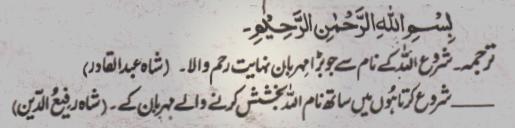 بِسْمِ اللهِ الرَّحْمٰنِ الرَّحِيْمِ۔
ترجمہ۔ شروع اللہ کے نام سے جو بڑا مہربان نہایت رحم والا۔ (شاہ عبدالقادر)
____ شروع کرتا ہوں میں ساتھ نام اللہ بخشش کرنے والے مہربان کے۔ (شاہ رفیع الدّین)